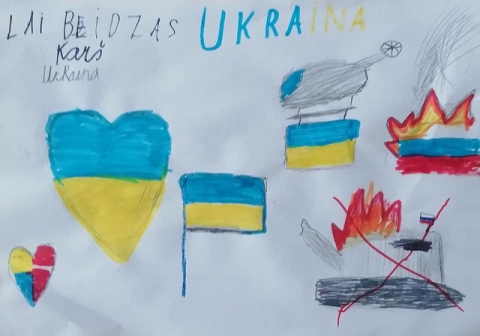 LAI BEIDZAS UKRAINA
Karš
Ukraina